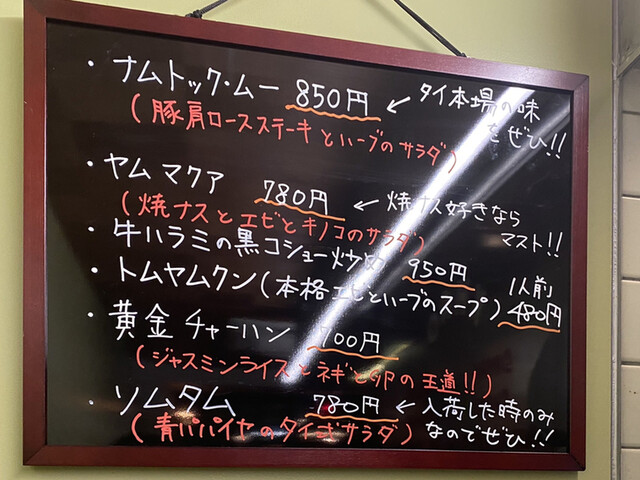 ・ナムトック・ムー 850円 ← タイ本場の味
をぜひ!!
(豚肩ロースステーキとハーブのサラダ)
・ヤムマクア 780円 ← 焼ナス好きなら
マスト!!
(焼ナスとエビとキノコのサラダ)
・牛ハラミの黒コショー炒め 950円
・トムヤムクン(本格エビとハーブのスープ) 1人前 480円
・黄金チャーハン 700円
(ジャスミンライスとネギと卵の王道!!)
・ソムタム 780円 ← 入荷した時のみ
なのでぜひ!!
(青パパイヤのタイ式サラダ)